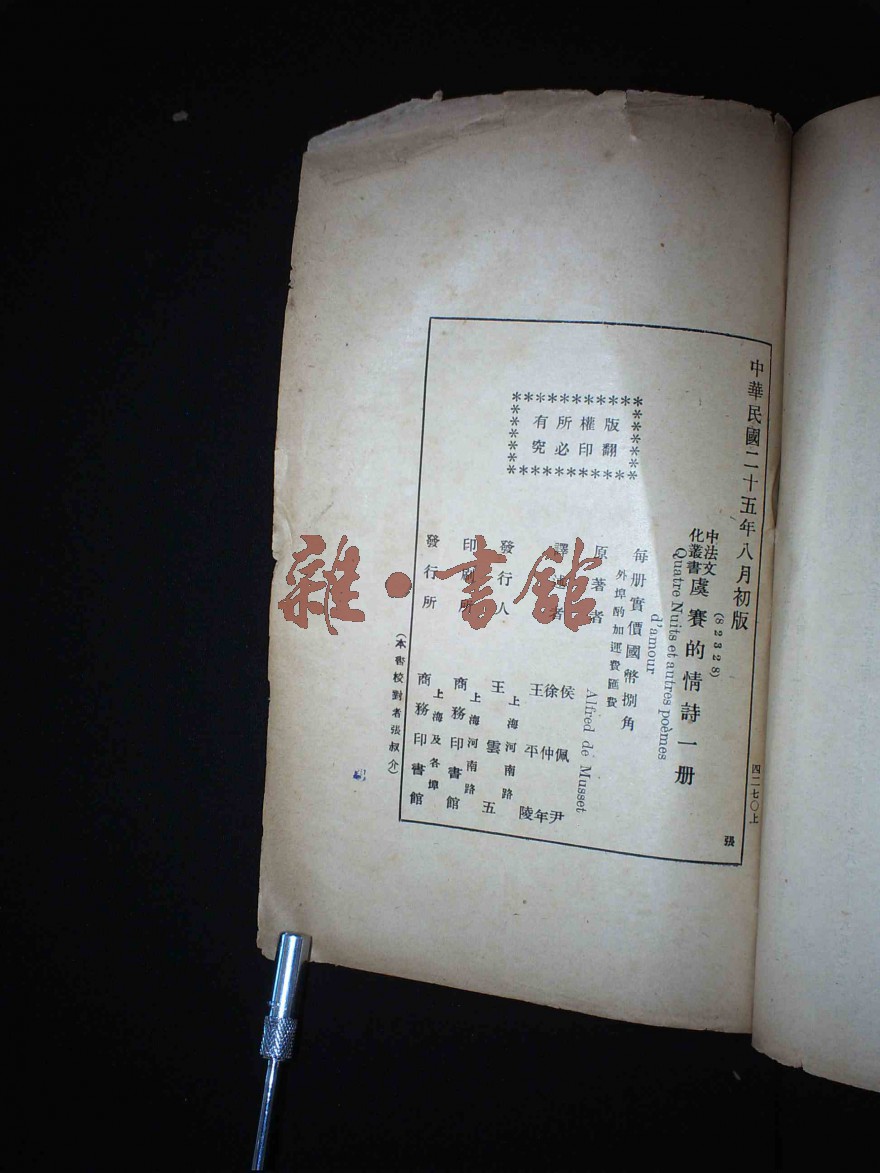 中華民國二十五年八月初版
四二七〇上
張
(82328)
中法文化叢書
虞賽的情詩一册
Quatre Nuits et autres poèmes d'amour
每册實價國幣捌角
外埠酌加運費匯費
原著者 Alfred de Musset
譯述者 侯佩尹 徐仲年 王平陵
發行人 王雲五
上海河南路
印刷所 商務印書館
上海河南路
發行所 商務印書館
上海及各埠
(本書校對者張叔介)
版權所有
翻印必究
雜·書館